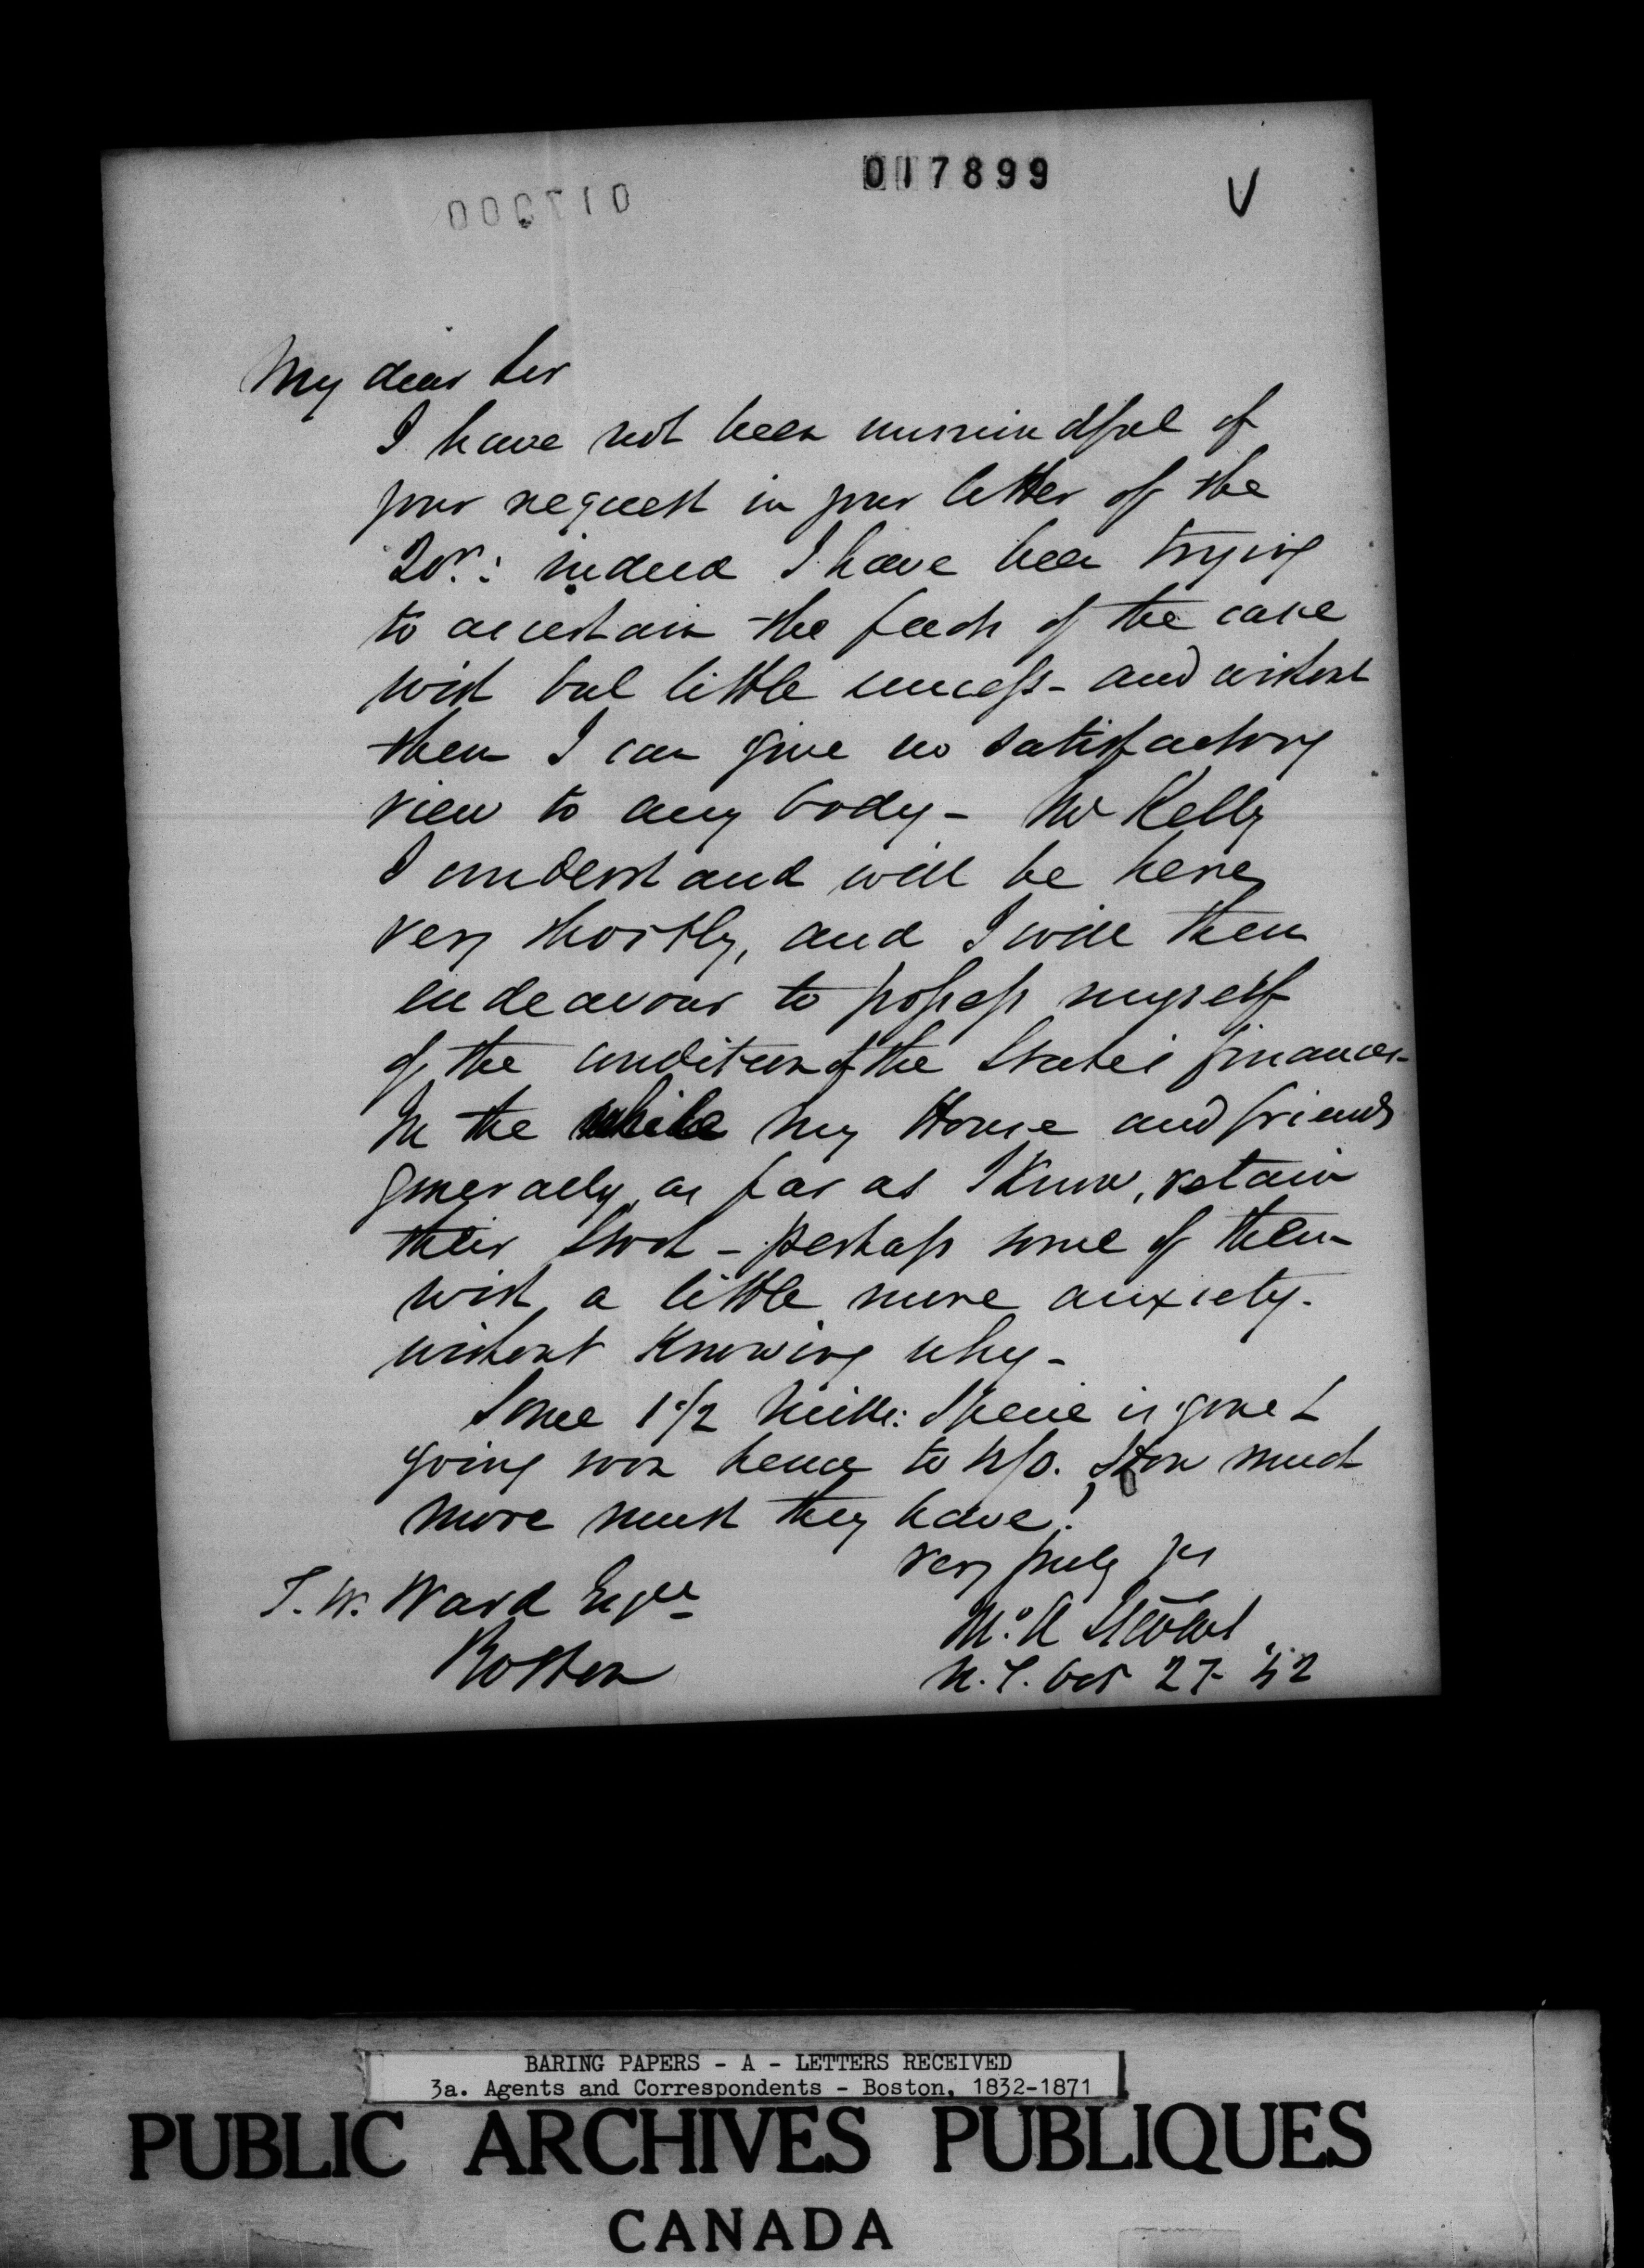 017899
V
My dear Sir
I have not been unmindful of
your request in your letter of the
20th: indeed I have been trying
to ascertain the facts of the case
with but little success - and without
them I can give no satisfactory
view to any body - Mr Kelly
I understand will be here
very shortly, and I will then
endeavour to possess myself
of the condition of the State's finances -
In the while my House and friends
generally, as far as I know, retain
their Stock - perhaps some of them
with a little more anxiety -
without knowing why -
Some 1 1/2 Mills: Specie is gone &
going soon hence to N/O. How much
more must they have!
Very truly yrs
T. W. Ward Esqre
Boston
N.Y. Oct 27 - 
BARING PAPERS - A - LETTERS RECEIVED
3a. Agents and Correspondents - Boston, 1832-1871
PUBLIC ARCHIVES PUBLIQUES
CANADA